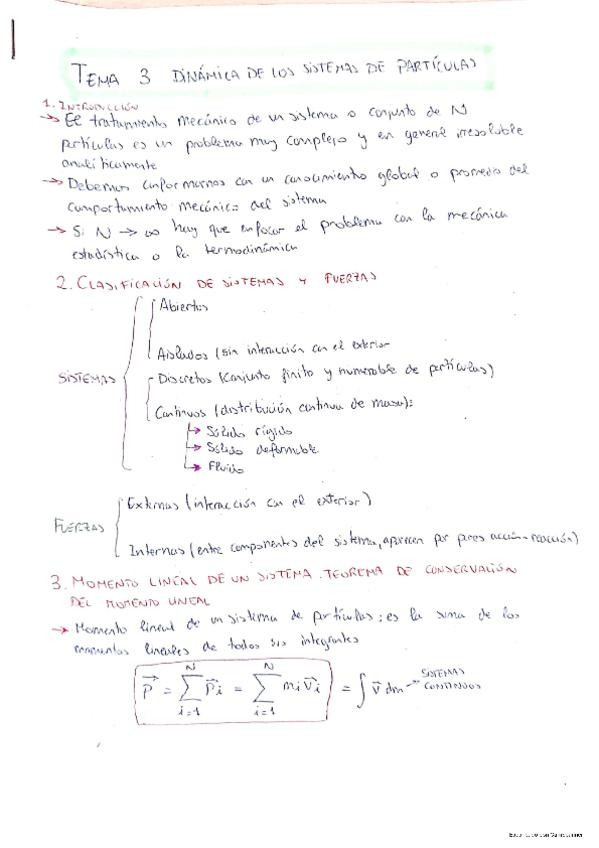 TEMA 3 DINÁMICA DE LOS SISTEMAS DE PARTÍCULAS
1. INTRODUCCIÓN
→ El tratamiento mecánico de un sistema o conjunto de N
partículas es un problema muy complejo y en general irresoluble
analíticamente
→ Debemos conformarnos con un conocimiento global o promedio del
comportamiento mecánico del sistema
→ Si N → ∞ hay que enfocar el problema con la mecánica
estadística o la termodinámica
2. CLASIFICACIÓN DE SISTEMAS Y FUERZAS
Abiertos
Aislados (sin interacción con el exterior
SISTEMAS
Discretos (conjunto finito y numerable de partículas)
Continuos (distribución continua de masa):
→ Sólido rígido
→ Sólido deformable
→ Fluido
Externas (interacción con el exterior)
FUERZAS
Internas (entre componentes del sistema, aparecen por pares acción-reacción)
3. MOMENTO LINEAL DE UN SISTEMA. TEOREMA DE CONSERVACIÓN
DEL MOMENTO LINEAL
→ Momento lineal de un sistema de partículas: es la suma de los
momentos lineales de todos sus integrantes
P⃗ = ∑_{i=1}^{N} p⃗i = ∑_{i=1}^{N} mi v⃗i = ∫ v⃗ dm → SISTEMAS CONTINUOS